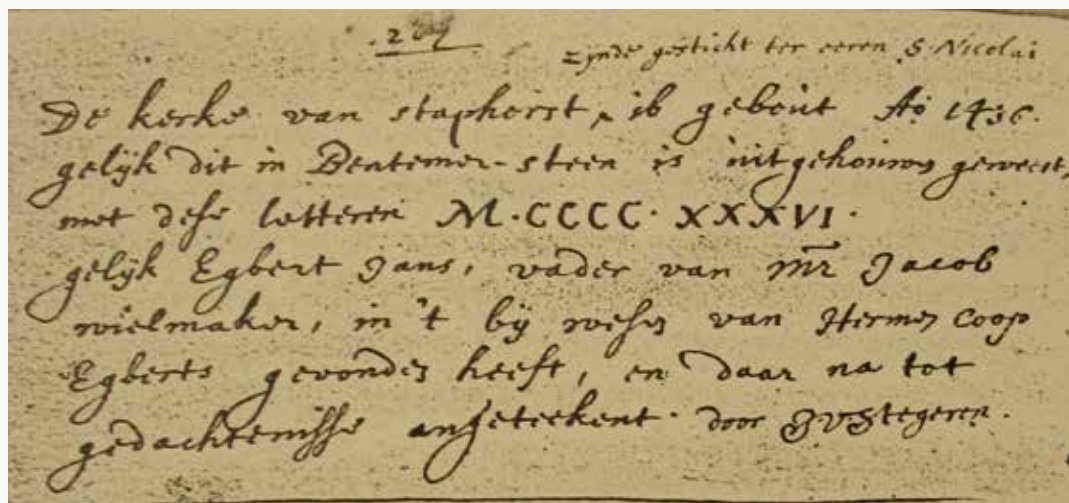 zijnde gesticht ter eeren S. Nicolai
De kerke van staphorst, is gebout Aõ 1436.
gelijk dit in Bentemer-steen is uitgehouwen geweest,
met dese letteren M·CCCC·XXXVI·
gelijk Egbert Jans, vader van Mr Jacob
wielmaker, in't bij wesen van Hermen Coop
Egberts gevonden heeft, en daar na tot
gedachtenisse angeteekent door JVStegeren.